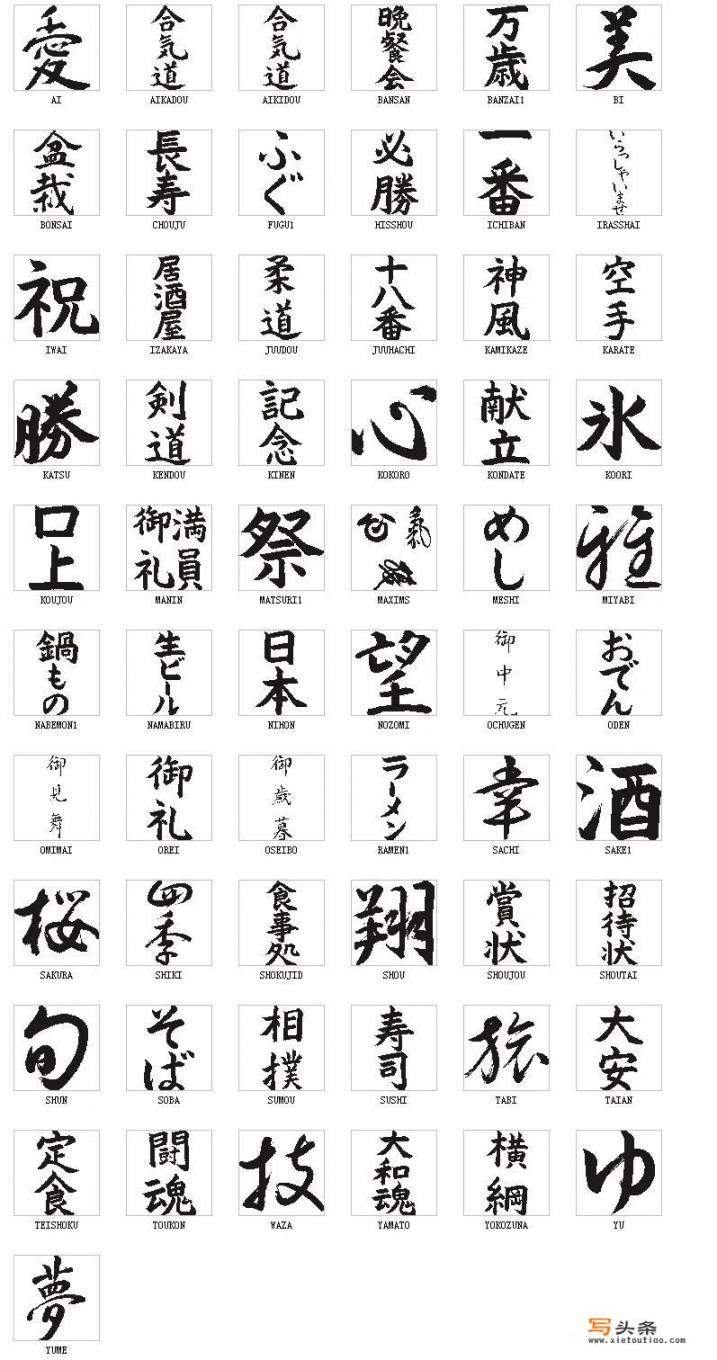 愛 合気道 合気道 晩餐会 万歳 美
AI AIKADOU AIKIDOU BANSAN BANZAI1 BI
盆栽 長寿 ふぐ 必勝 一番 いらっしゃいませ
BONSAI CHOUJU FUGU1 HISSHOU ICHIBAN IRASSHAI
祝 居酒屋 柔道 十八番 神風 空手
IWAI IZAKAYA JUUDOU JUUHACHI KAMIKAZE KARATE
勝 剣道 記念 心 献立 氷
KATSU KENDOU KINEN KOKORO KONDATE KOORI
口上 満員御礼 祭 めし 雅
KOUJOU MANIN MATSURI1 MAXIMS MESHI MIYABI
鍋もの 生ビール 日本 望 御中元 おでん
NABEMON1 NAMABIRU NIHON NOZOMI OCHUGEN ODEN
御見舞 御礼 御歳暮 ラーメン 幸 酒
OMIMAI OREI OSEIBO RAMEN1 SACHI SAKE1
桜 四季 食事処 翔 賞状 招待状
SAKURA SHIKI SHOKUJID SHOU SHOUJOU SHOUTAI
旬 そば 相撲 寿司 旅 大安
SHUN SOBA SUMOU SUSHI TABI TAIAN
定食 闘魂 技 大和魂 横綱 ゆ
TEISHOKU TOUKON WAZA YAMATO YOKOZUNA YU
夢
YUME
写头条
www.xietoutiao.com